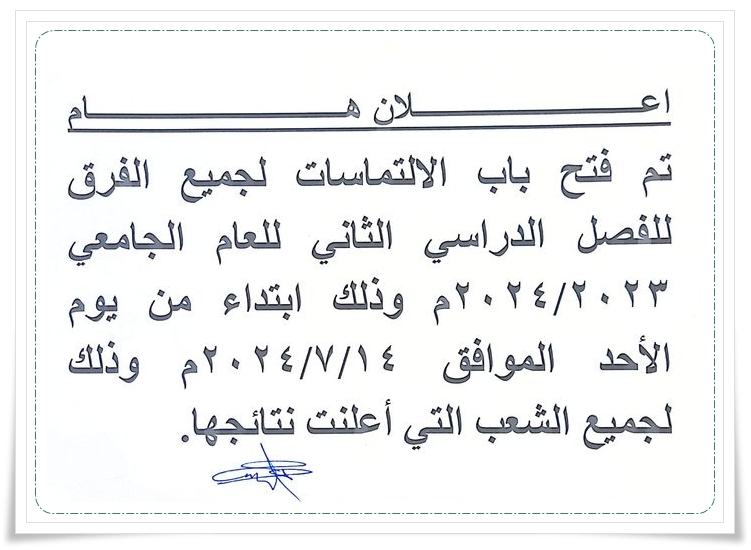 اعـــــــــــــــلان هـــــــــــــــام
تم فتح باب الالتماسات لجميع الفرق
للفصل الدراسي الثاني للعام الجامعي
٢٠٢٤/٢٠٢٣م وذلك ابتداء من يوم
الأحد الموافق ٢٠٢٤/٧/١٤م وذلك
لجميع الشعب التي أعلنت نتائجها.